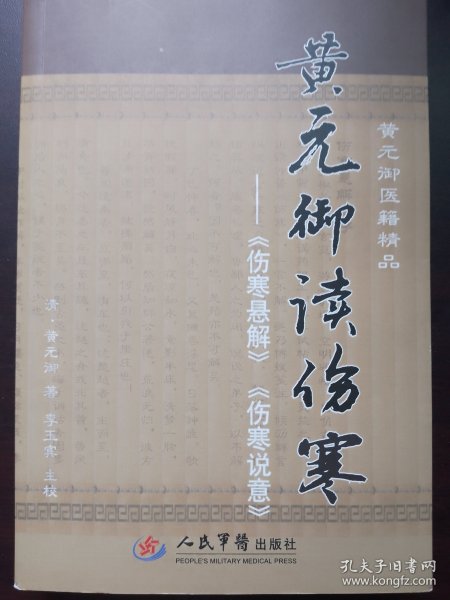 黄元御医籍精品
黄元御读伤寒
——《伤寒悬解》《伤寒说意》
清·黄元御 著 李玉宾 主校
人民军医出版社
PEOPLE'S MILITARY MEDICAL PRESS
孔夫子旧书网
www.kongfz.com